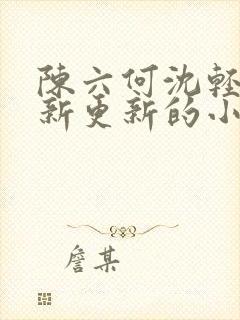 陳六何沈輕
新更新的小
詹某